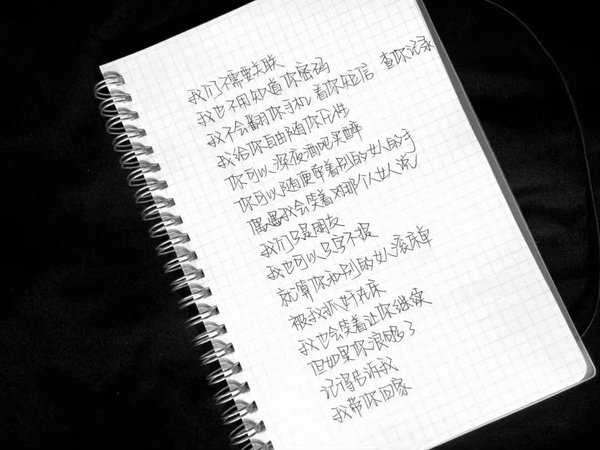 我们不需要关联
我也不用知道你密码
我不会翻你手机 看你短信 查你记录
我给你自由随你任性
你可以深夜酒吧买醉
你可以随便牵着别的女人的手
偶遇我会笑着对那个女人说
我们只是朋友
我也可以只字不提
就算你和别的女人滚床单
被我抓奸在床
我也会笑着让你继续
但如果你浪够了
记得告诉我
我带你回家